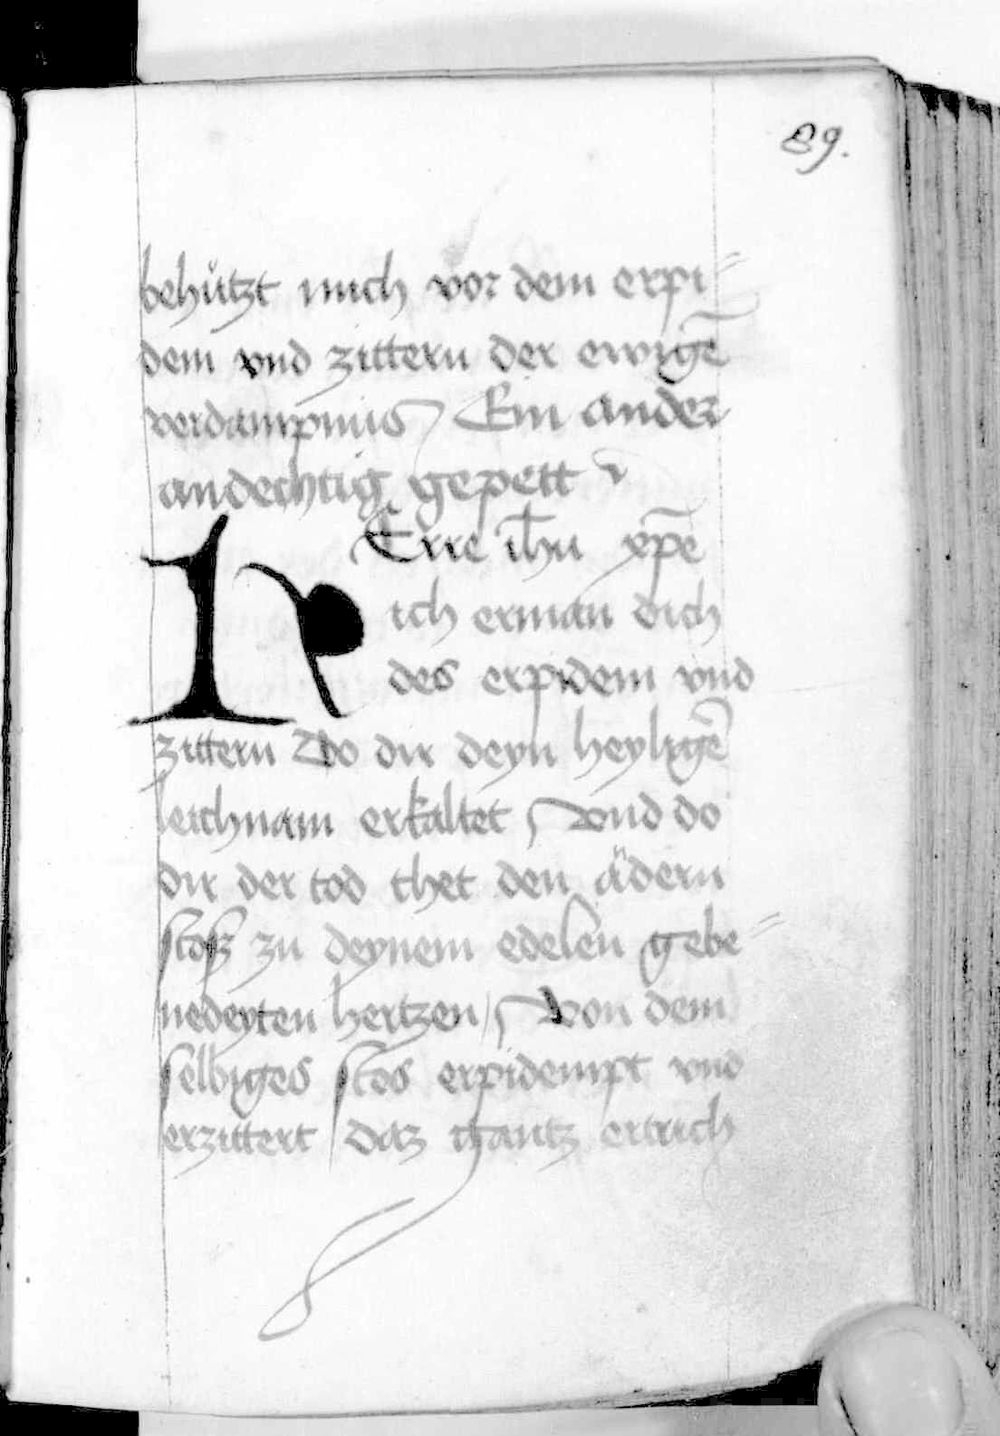 89.
behützt mich vor dem erpi=
dem vnd zittern der ewigē
verdampnus / Ein ander
andechtig gepett
HErre ih̄u xp̄e
ich erman dich
des erpidem vnd
zittern Do dir deyn heyligē
leichnam erkaltet / Vnd do
dir der tod thet den ädern
stoß zu deynem edelen gebe=
nedeyten hertzen / Von dem
selbiges stos erpidempt vnd
erzittert daz gantz ertrich